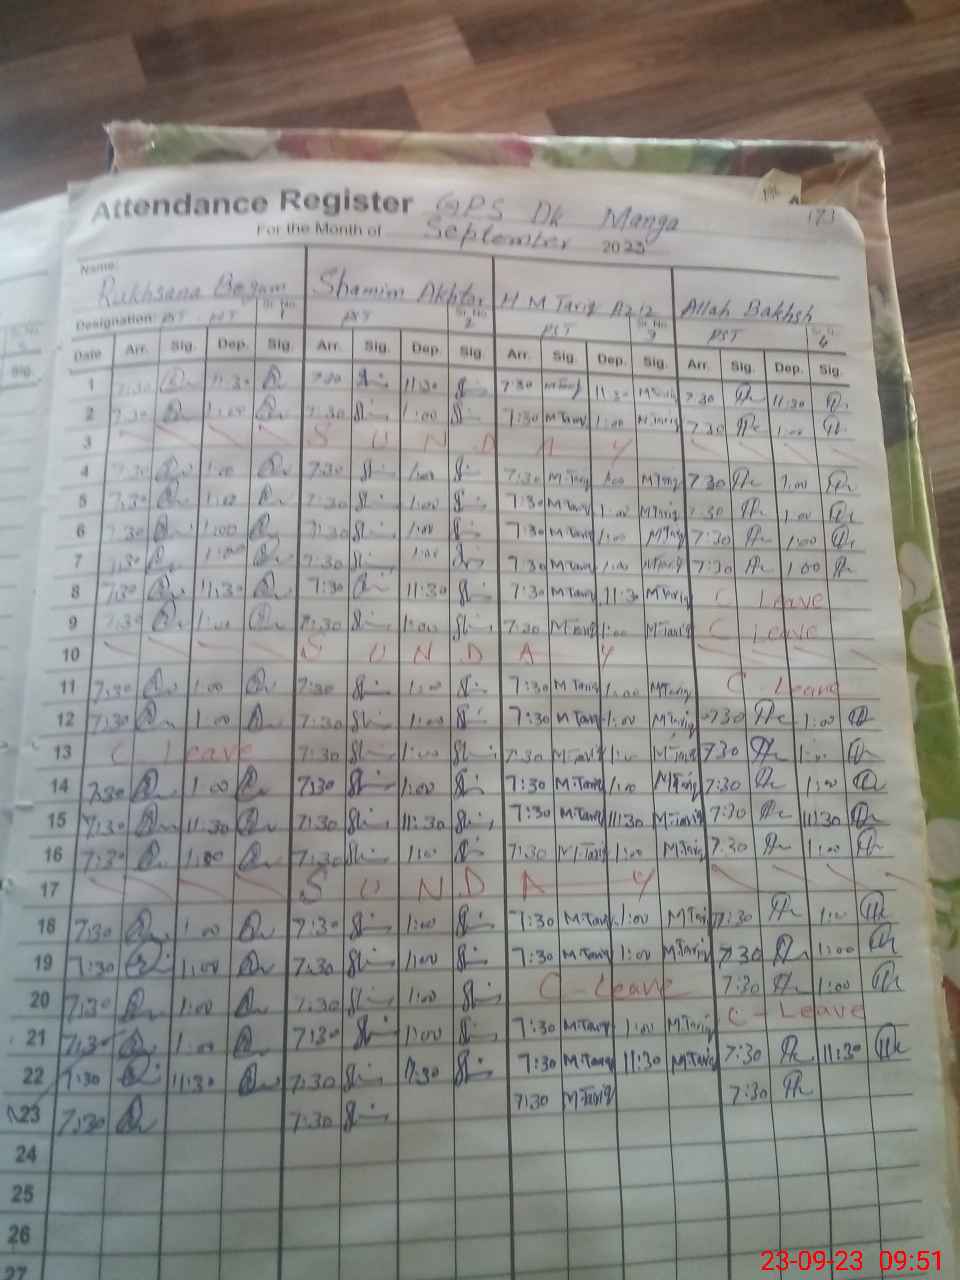 173
Attendance Register GPS Dk Manga
For the Month of September 2023
Name:
Rukhsana Begum Shamim Akhtar H M Tariq Aziz Allah Bakhsh
Designation: PST Sr. No. 1 PST Sr. No. 2 PST Sr. No. 3 PST 4
Date Arr. Sig. Dep. Sig. Arr. Sig. Dep. Sig. Arr. Sig. Dep. Sig. Arr. Sig. Dep. Sig.
1 7:30 11:30 7:30 11:30 7:30 M Tariq 11:30 M Tariq 7:30 11:30
2 7:30 1:00 7:30 1:00 7:30 M Tariq 1:00 M Tariq 7:30 1:00
3 S U N D A Y
4 7:30 1:00 7:30 1:00 7:30 M Tariq 1:00 M Tariq 7:30 1:00
5 7:30 1:00 7:30 1:00 7:30 M Tariq 1:00 M Tariq 7:30 1:00
6 7:30 1:00 7:30 1:00 7:30 M Tariq 1:00 M Tariq 7:30 1:00
7 7:30 1:00 7:30 1:00 7:30 M Tariq 1:00 M Tariq 7:30 1:00
8 7:30 11:30 7:30 11:30 7:30 M Tariq 11:30 M Tariq C Leave
9 7:30 1:00 7:30 1:00 7:30 M Tariq 1:00 M Tariq C Leave
10 S U N D A Y
11 7:30 1:00 7:30 1:00 7:30 M Tariq 1:00 M Tariq C - Leave
12 7:30 1:00 7:30 1:00 7:30 M Tariq 1:00 M Tariq 7:30 1:00
13 C Leave 7:30 1:00 7:30 M Tariq 1:00 M Tariq 7:30 1:00
14 7:30 1:00 7:30 1:00 7:30 M Tariq 1:00 M Tariq 7:30 1:00
15 7:30 11:30 7:30 11:30 7:30 M Tariq 11:30 M Tariq 7:30 11:30
16 7:30 1:00 7:30 1:00 7:30 M Tariq 1:00 M Tariq 7:30 1:00
17 S U N D A Y
18 7:30 1:00 7:30 1:00 7:30 M Tariq 1:00 M Tariq 7:30 1:00
19 7:30 1:00 7:30 1:00 7:30 M Tariq 1:00 M Tariq 7:30 1:00
20 7:30 1:00 7:30 1:00 C - Leave 7:30 1:00
21 7:30 1:00 7:30 1:00 7:30 M Tariq 1:00 M Tariq C - Leave
22 7:30 11:30 7:30 7:30 M Tariq 11:30 M Tariq 7:30 11:30
23 7:30 7:30 7:30 M Tariq 7:30
24
25
26
27
23-09-23 09:51